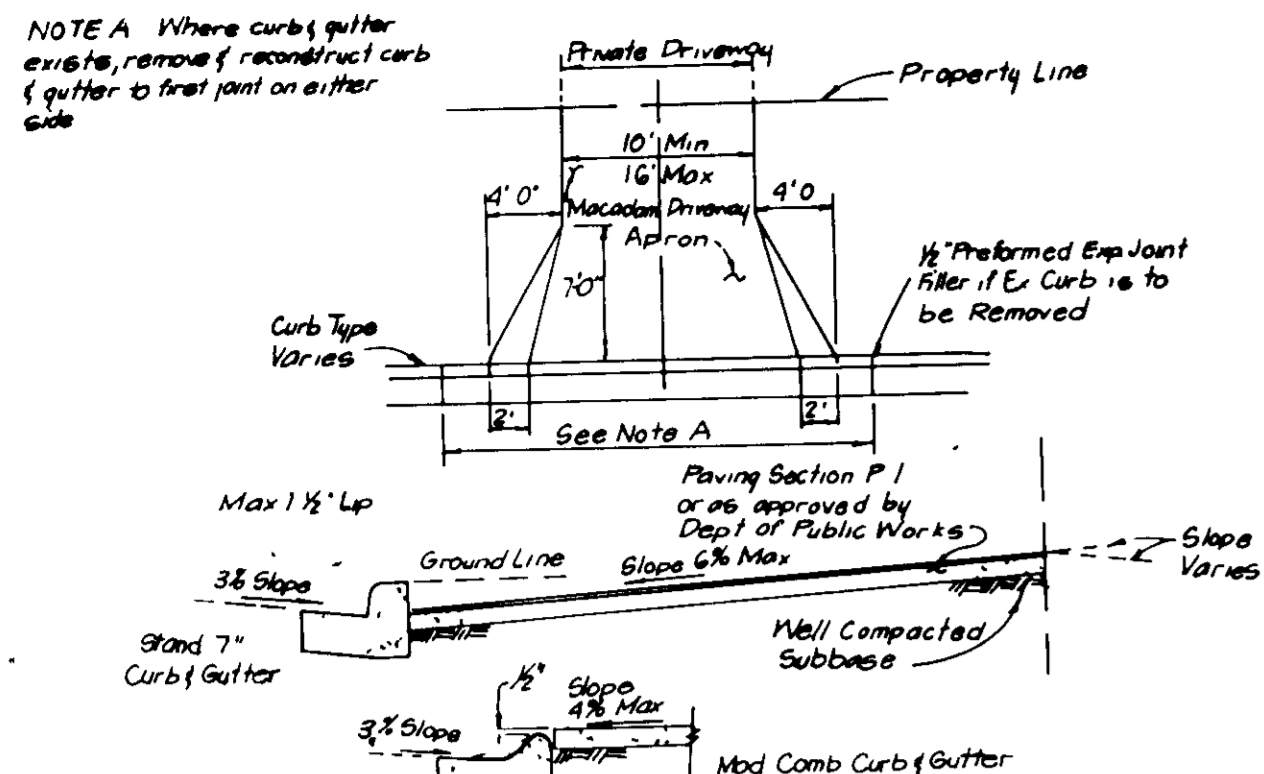 NOTE A Where curb & gutter
exists, remove & reconstruct curb
& gutter to first joint on either
side
Private Driveway
Property Line
10' Min
16' Max
4' 0"
4' 0
Macadam Driveway
Apron
7'0"
1/2" Preformed Exp Joint
Filler if Ex Curb is to
be Removed
Curb Type
Varies
2'
2'
See Note A
Paving Section P 1
or as approved by
Dept of Public Works
Max 1 1/2" Lip
Ground Line
Slope 6% Max
Slope
Varies
3% Slope
Stand 7"
Curb & Gutter
Well Compacted
Subbase
1/2"
Slope
4% Max
3% Slope
Mod Comb Curb & Gutter